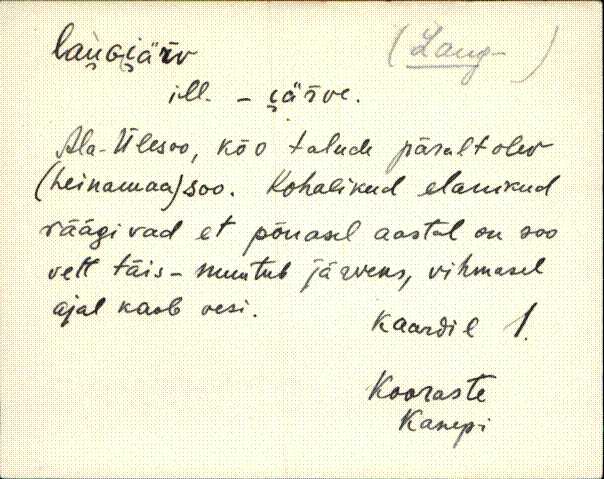 laugjärv (Laug-)
ill. - järve.
Ala-Ülesoo, kõo talude päralt olev
(heinamaa) soo. Kohalikud elanikud
räägivad et põuasel aastal on soo
vett täis - muutub järveks, vihmasel
ajal kaob vesi.
Kaardil 1.
Kooraste
Kanepi